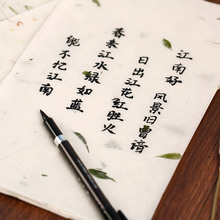 江南好 风景旧曾谙
日出江花红胜火
春来江水绿如蓝
能不忆江南